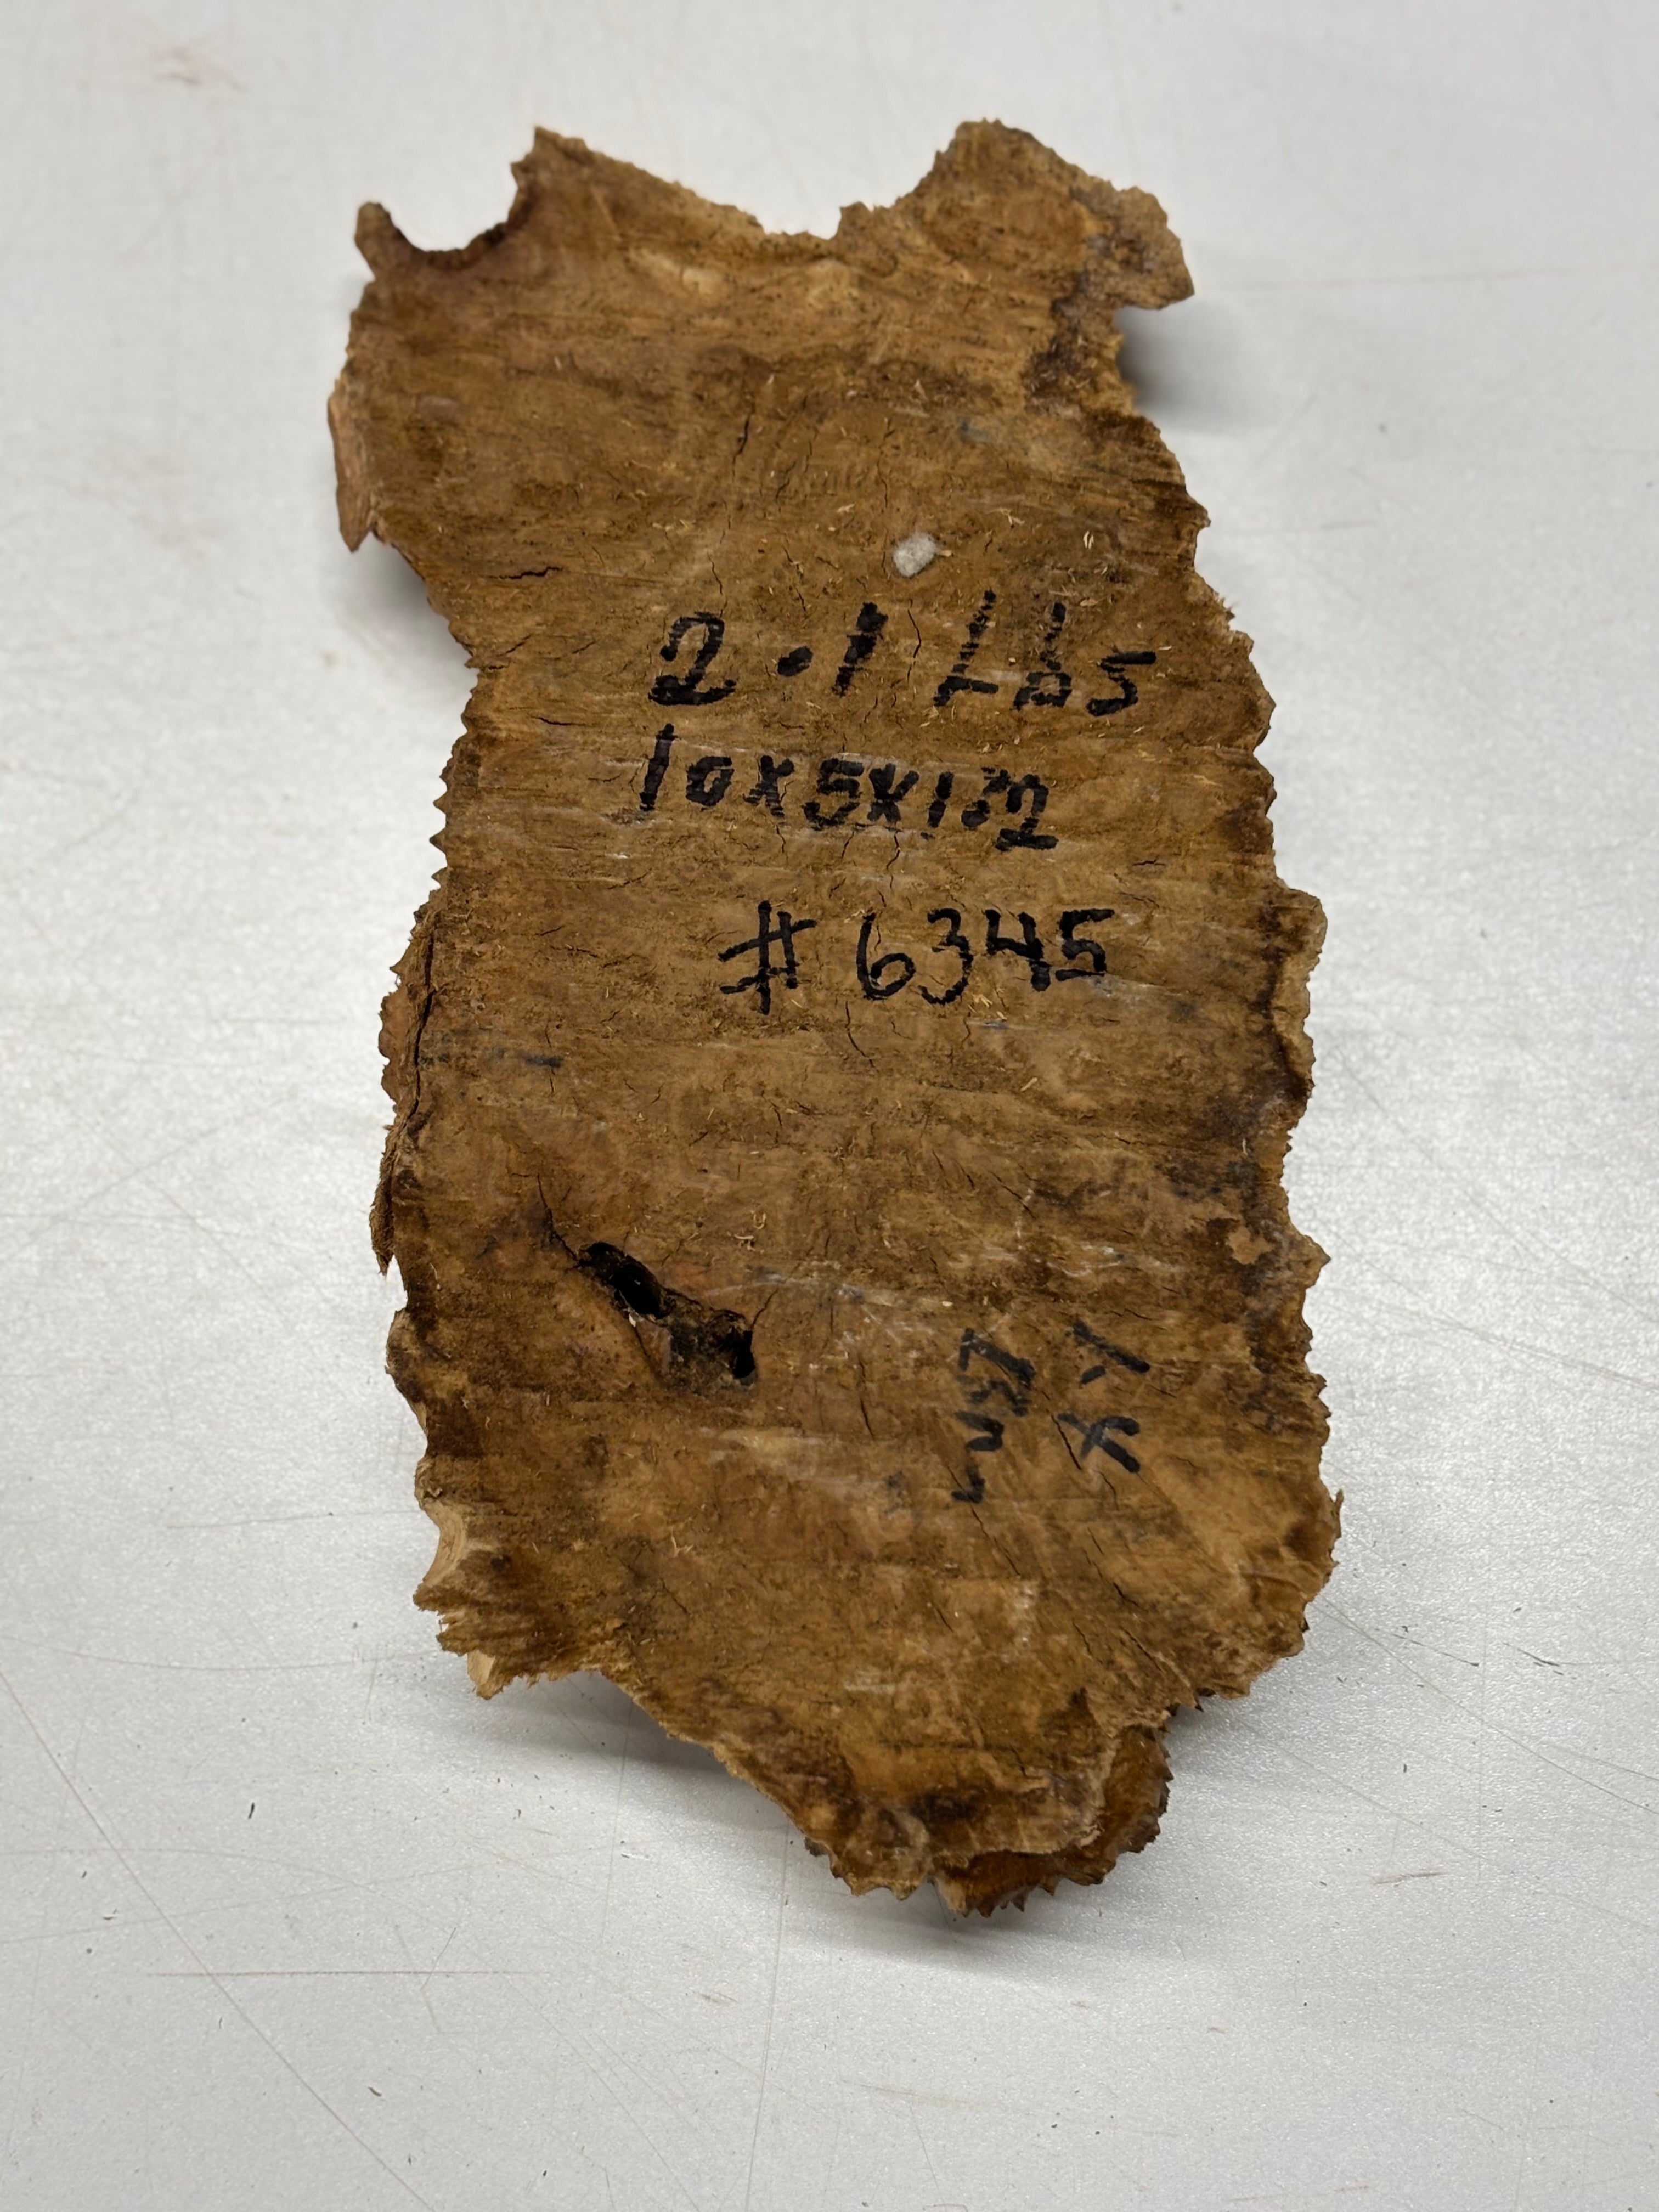 2.1 Lbs
10x5x1.2
#6345
XY